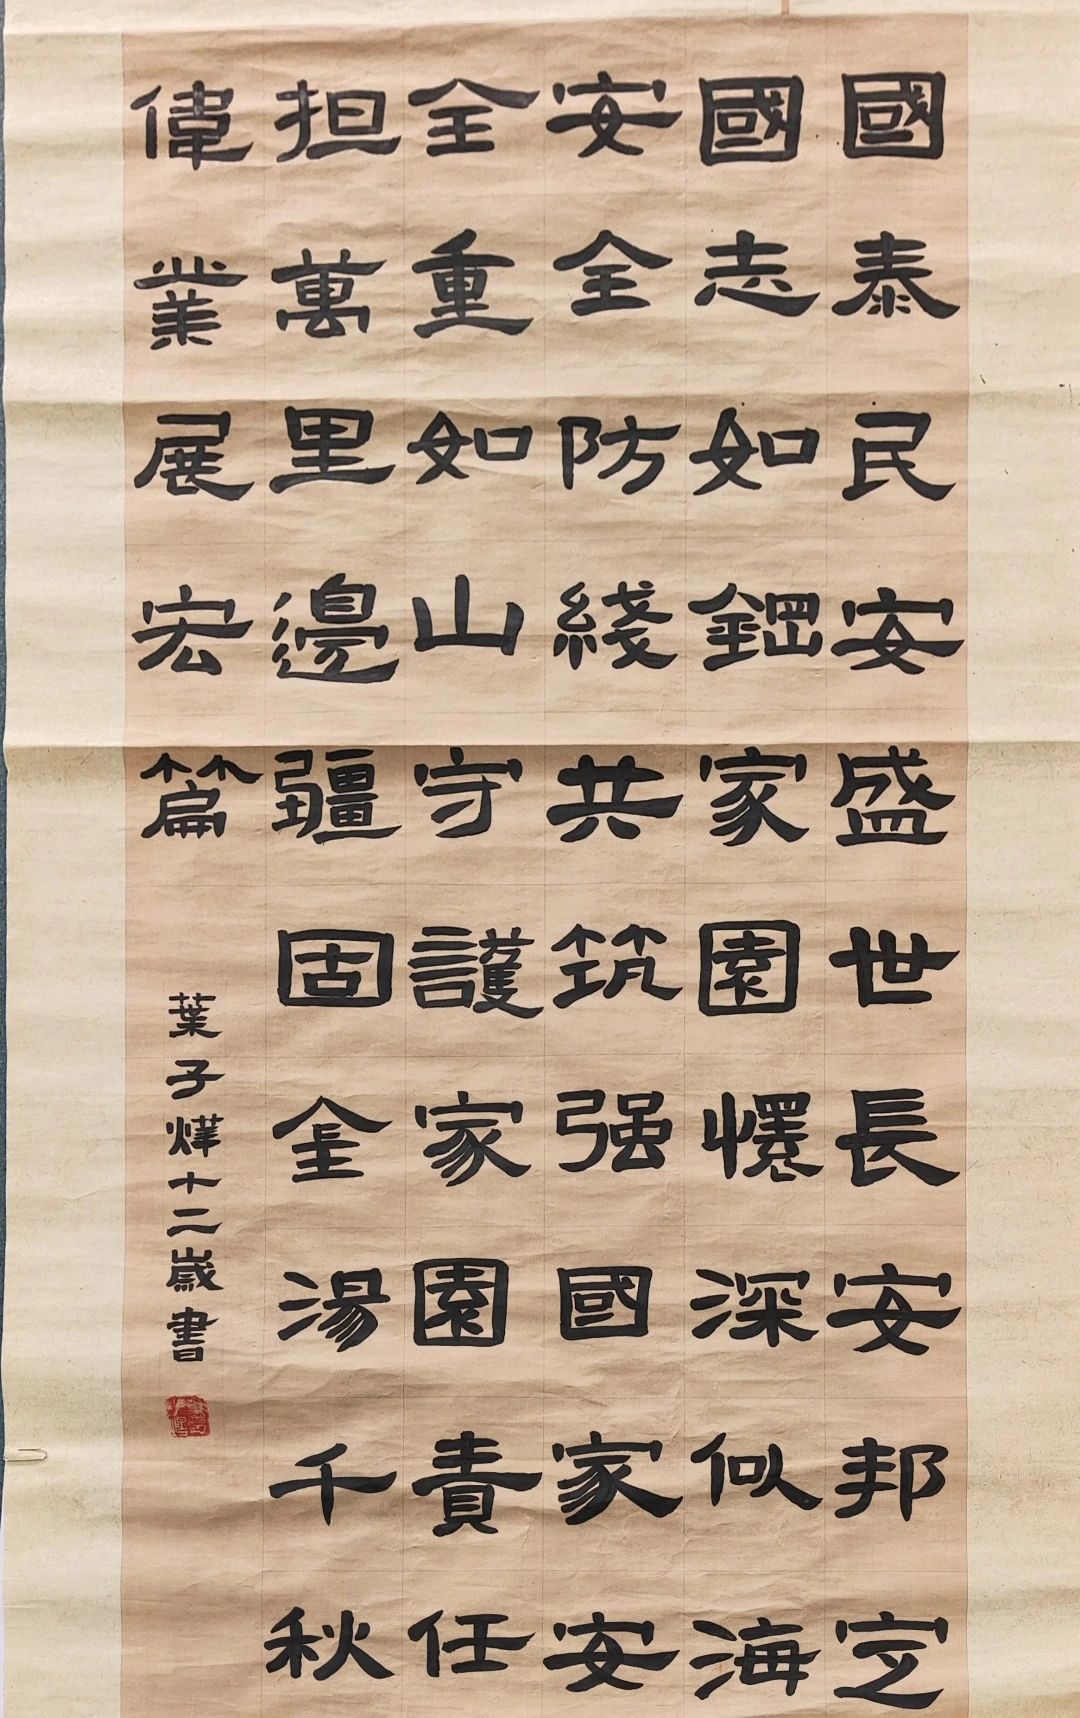 國泰民安盛世長安邦定
國志如鋼家園情深似海
安全防綫共筑强國家安
全重如山守護家園責任
担萬里邊疆固金湯千秋
偉業展宏篇
葉子燁十二歲書